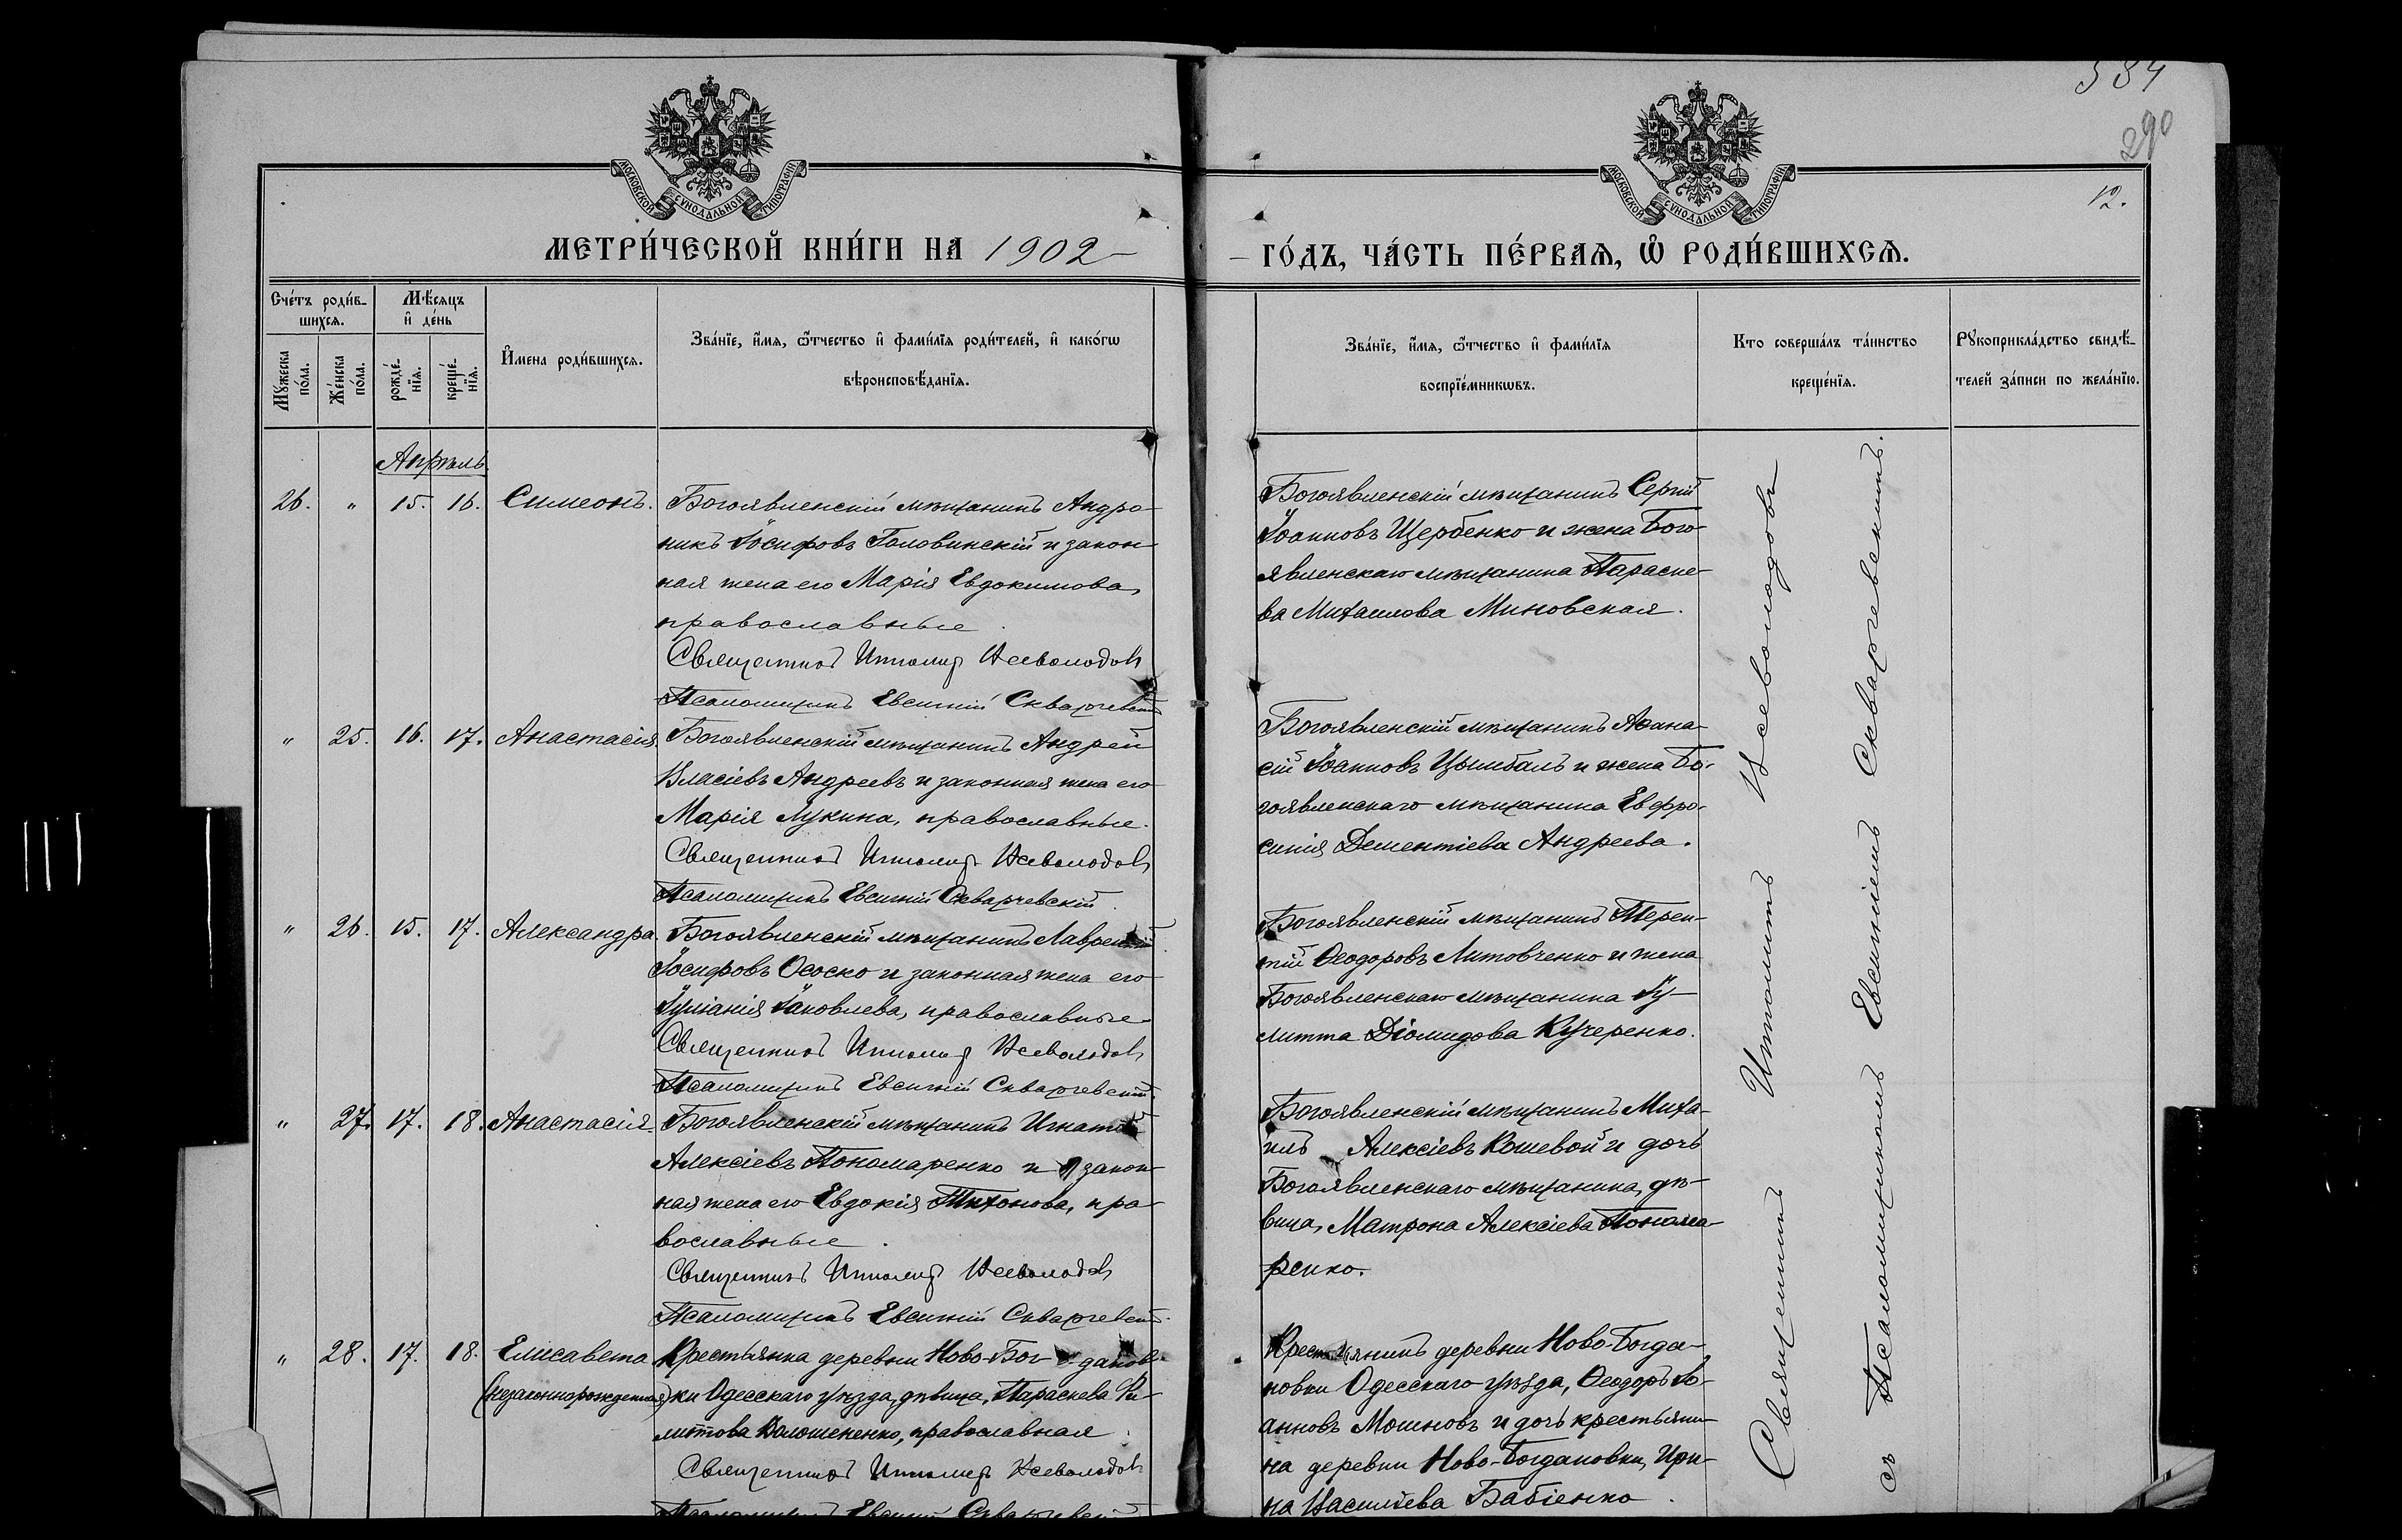 534
290
12.
МОСКОВСКОЙ СУНОДАЛЬНОЙ ТИПОГРАФІИ
МОСКОВСКОЙ СУНОДАЛЬНОЙ ТИПОГРАФІИ
МЕТРИ́ЧЕСКОЙ КНИ́ГИ НА 1902 –
– ГО́ДЪ, ЧА́СТЬ ПЕ́РВАѦ, Ѡ РОДИ́ВШИХСѦ.
Счéтъ роди́в-
шихсѧ.
Мꙋжеска пóла.
Жéнска пóла.
Мѣ́сяцъ
и҆ дéнь
рождé-нїѧ.
крещé-нїѧ.
И҆мена роди́вшихсѧ.
Звáнїе, и҆́мѧ, ѻ҆́тчество и҆ фами́лїѧ роди́телей, и҆ какóгѡ
вѣроисповѣ́данїѧ.
Звáнїе, и҆́мѧ, ѻ҆́тчество и҆ фами́лїѧ
воспрїéмникѡвъ.
Ктò совершáлъ тáинство
крещéнїѧ.
Рꙋкоприклáдство свидѣ́-
телей зáписи по желáнїю.
Апрѣль
26. " 15. 16. Симеонъ. Богоявленскій мѣщанинъ Андро-
никъ Іосифовъ Головинскій и закон-
ная жена его Марія Евдокимова,
православные.
Священникъ Ипполитъ Всеволодовъ
Псаломщикъ Евсигній Скваржевскій
Богоявленскій мѣщанинъ Сергій
Іоанновъ Щербенко и жена Бого-
явленскаго мѣщанина Параске-
ва Михаилова Миновская.
" 25. 16. 17. Анастасія. Богоявленскій мѣщанинъ Андрей
Власіевъ Андреевъ и законная жена его
Марія Лукина, православные.
Священникъ Ипполитъ Всеволодовъ
Псаломщикъ Евсигній Скваржевскій.
Богоявленскій мѣщанинъ Аѳана-
сій Іоанновъ Цымбалъ и жена Бо-
гоявленскаго мѣщанина Евфро-
синія Дементіева Андреева.
" 26. 15. 17. Александра. Богоявленскій мѣщанинъ Лаврентій
Іосифовъ Ососко и законная жена его
Іуліанія Іаковлева, православные
Священникъ Ипполитъ Всеволодовъ
Псаломщикъ Евсигній Скваржевскій.
Богоявленскій мѣщанинъ Терен-
тій Ѳеодоровъ Литовченко и жена
Богоявленскаго мѣщанина Іу-
литта Діомидова Кучеренко.
" 27. 17. 18. Анастасія. Богоявленскій мѣщанинъ Игнатій
Алексіевъ Пономаренко и закон-
ная жена его Евдокія Тихонова, пра-
вославные.
Священникъ Ипполитъ Всеволодовъ
Псаломщикъ Евсигній Скваржевскій.
Богоявленскій мѣщанинъ Миха-
илъ Алексіевъ Кошевой и дочь
Богоявленскаго мѣщанина, дѣ-
вица, Матрона Алексіева Понома-
ренко.
" 28. 17. 18. Елисавета (незаконнорожденная) Крестьянка деревни Ново-Бог-данов-
ки Одесскаго уѣзда, дѣвица, Параскева
Волошененко, православная.
Священникъ Ипполитъ Всеволодовъ
Псаломщикъ Евсигній Скваржевскій
Крестьянинъ деревни Ново-Богда-
новки Одесскаго уѣзда, Ѳеодоръ Іо-
анновъ Мошновъ и дочь крестьяни-
на деревни Ново-Богдановки, Ири-
на Василіева Бабіенко.
Священникъ Ипполитъ Всеволодовъ
съ Псаломщикомъ Евсигніемъ Скваржевскимъ.